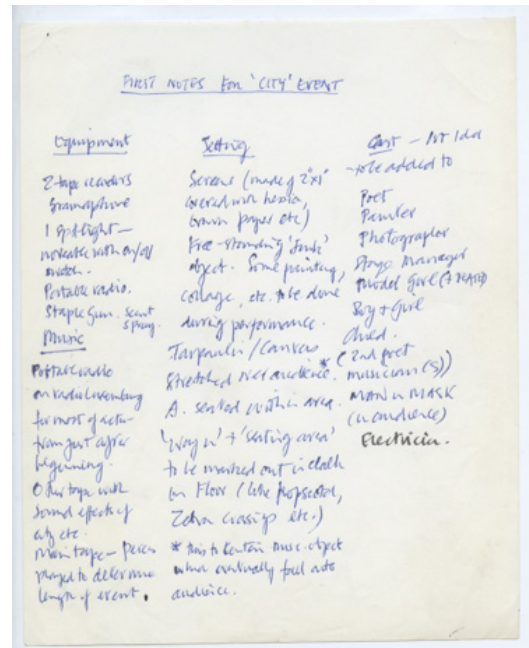 FIRST NOTES FOR 'CITY' EVENT
Equipment
2 tape recorders
Gramophone
1 Spotlight —
moveable with on/off
switch.
Portable radio.
Staple Gun. Scent
Spray.
Music
Portable radio
on radio Luxemburg
for most of action
from just after
beginning.
Other tape with
sound effects of
city etc.
Main tape — pieces
played to determine
length of event.
Setting
Screens (made of 2"x1"
covered with hessian,
brown paper etc)
Free-standing 'junk'
object. Some painting,
collage, etc. to be done
during performance.
Tarpaulin / Canvas
stretched over audience. *
A. seated within area.
'way in' + 'seating area'
to be marked out in cloth
on Floor (like hopscotch,
Zebra crossings etc.)
* this to contain music-object
which eventually fall onto
audience.
Cast — 1st Idea
— to be added to
Poet
Painter
Photographer
Stage Manager
Model Girl
Boy + Girl
Child.
(2nd poet
musician(s))
MAN in MASK
(in audience)
Electrician.